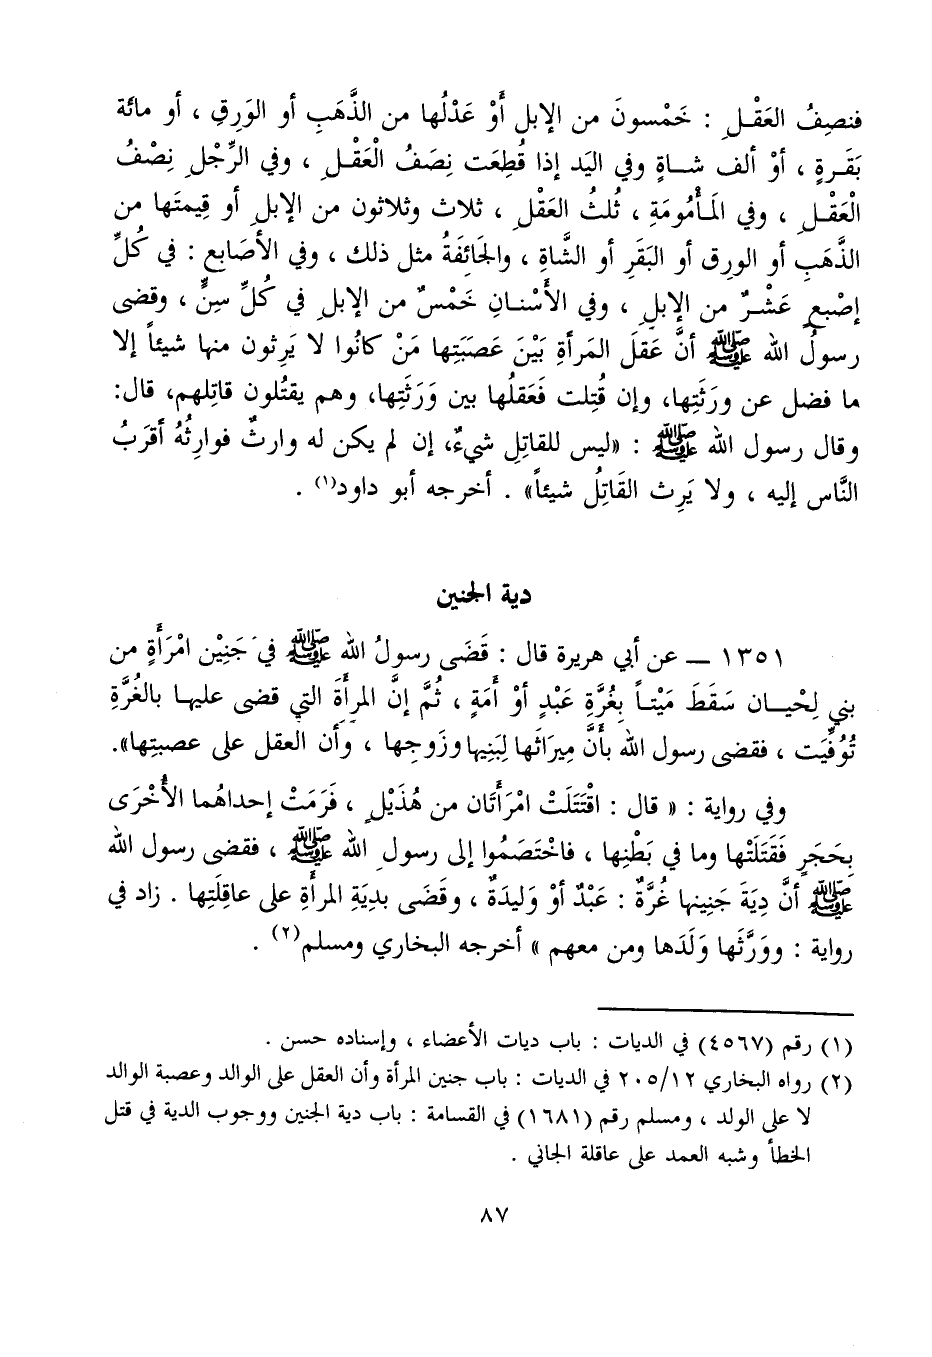 فنصِفُ العَقْـلِ : خَمْسونَ من الإبلِ أَوْ عَدْلُها من الذَّهَبِ أو الوَرِقِ ، أو مائة
بَقَـرةٍ ، أوْ ألف شـاةٍ وفي اليَد إذا قُطِعَت نِصَفُ الْعَقْـلِ ، وفي الرِّجْلِ نِصْفُ
الْعَقْـلِ ، وفي المَـأْمُومَةِ ، ثُلثُ العَقْلِ ، ثلاث وثلاثون من الإبلِ أو قِيمتَها من
الذَّهَبِ أو الورِق أو البَقَرِ أو الشَّاةِ ، والجَائِفَةُ مثل ذلك ، وفي الأصَابِع : في كُلِّ
إصْبعٍ عَشْـرٌ من الإبلِ ، وفي الأَسْنـانِ خَمْسٌ من الإبلِ في كُلِّ سِنٍّ ، وقضى
رسولُ الله ﷺ أنَّ عَقلَ المَرأةِ بَيْنَ عَصَبَتِها مَنْ كانُوا لا يَرِثون منها شيئاً إلا
ما فضل عن ورَثَتِها، وإن قُتِلت فَعَقلُها بين وَرَثَتِها، وهم يقتُلون قاتِلهم، قال:
وقال رسول الله ﷺ : «ليس للقاتِلِ شيءٌ، إن لم يكن له وارثٌ فوارِثُهُ أقرَبُ
النَّاس إليه ، ولا يَرِث القَاتِلُ شيئاً» . أخرجه أبو داود(١) .
دية الجنين
١٣٥١ ـ عن أبي هريرة قال : قَضَى رسولُ الله ﷺ في جَنِيْن امْرَأَةٍ من
بني لِحْيـان سَقَطَ مَيْتـاً بِغُرَّةِ عَبْدٍ أوْ أَمَةٍ ، ثُمَّ إنَّ المرأَةَ التي قضى عليهـا بالغُرَّةِ
تُوُفِّيَت ، فقضى رسول الله بأنَّ مِيرَاثَها لِبَنِيها وزَوجِها ، وأن العقل على عصبتِها».
وفي رواية : « قال : اقْتَتَلَتْ امْرَأَتَان من هُذَيْلٍ ، فَرَمَتْ إحداهُما الأُخْرَى
بِحَجَرٍ فَقَتَلَتْها وما في بَطْنِها ، فاخْتَصَمُوا إلى رسولِ الله ﷺ ، فقضى رسول الله
ﷺ أنَّ دِيَةَ جَنِينها غُرَّةٌ : عَبْدٌ أوْ وَلِيدَةٌ ، وقَضَى بدِيَةِ المرأةِ على عاقِلَتِها . زاد في
رواية : ووَرَّثَها وَلَدَها ومن معهم » أخرجه البخاري ومسلم(٢) .
(١) رقم (٤٥٦٧) في الديات : باب ديات الأعضاء ، وإسناده حسن .
(٢) رواه البخاري ٢٠٥/١٢ في الديات : باب جنين المرأة وأن العقل على الوالد وعصبة الوالد
لا على الولد ، ومسلم رقم (١٦٨١) في القسامة : باب دية الجنين ووجوب الدية في قتل
الخطأ وشبه العمد على عاقلة الجاني .
٨٧